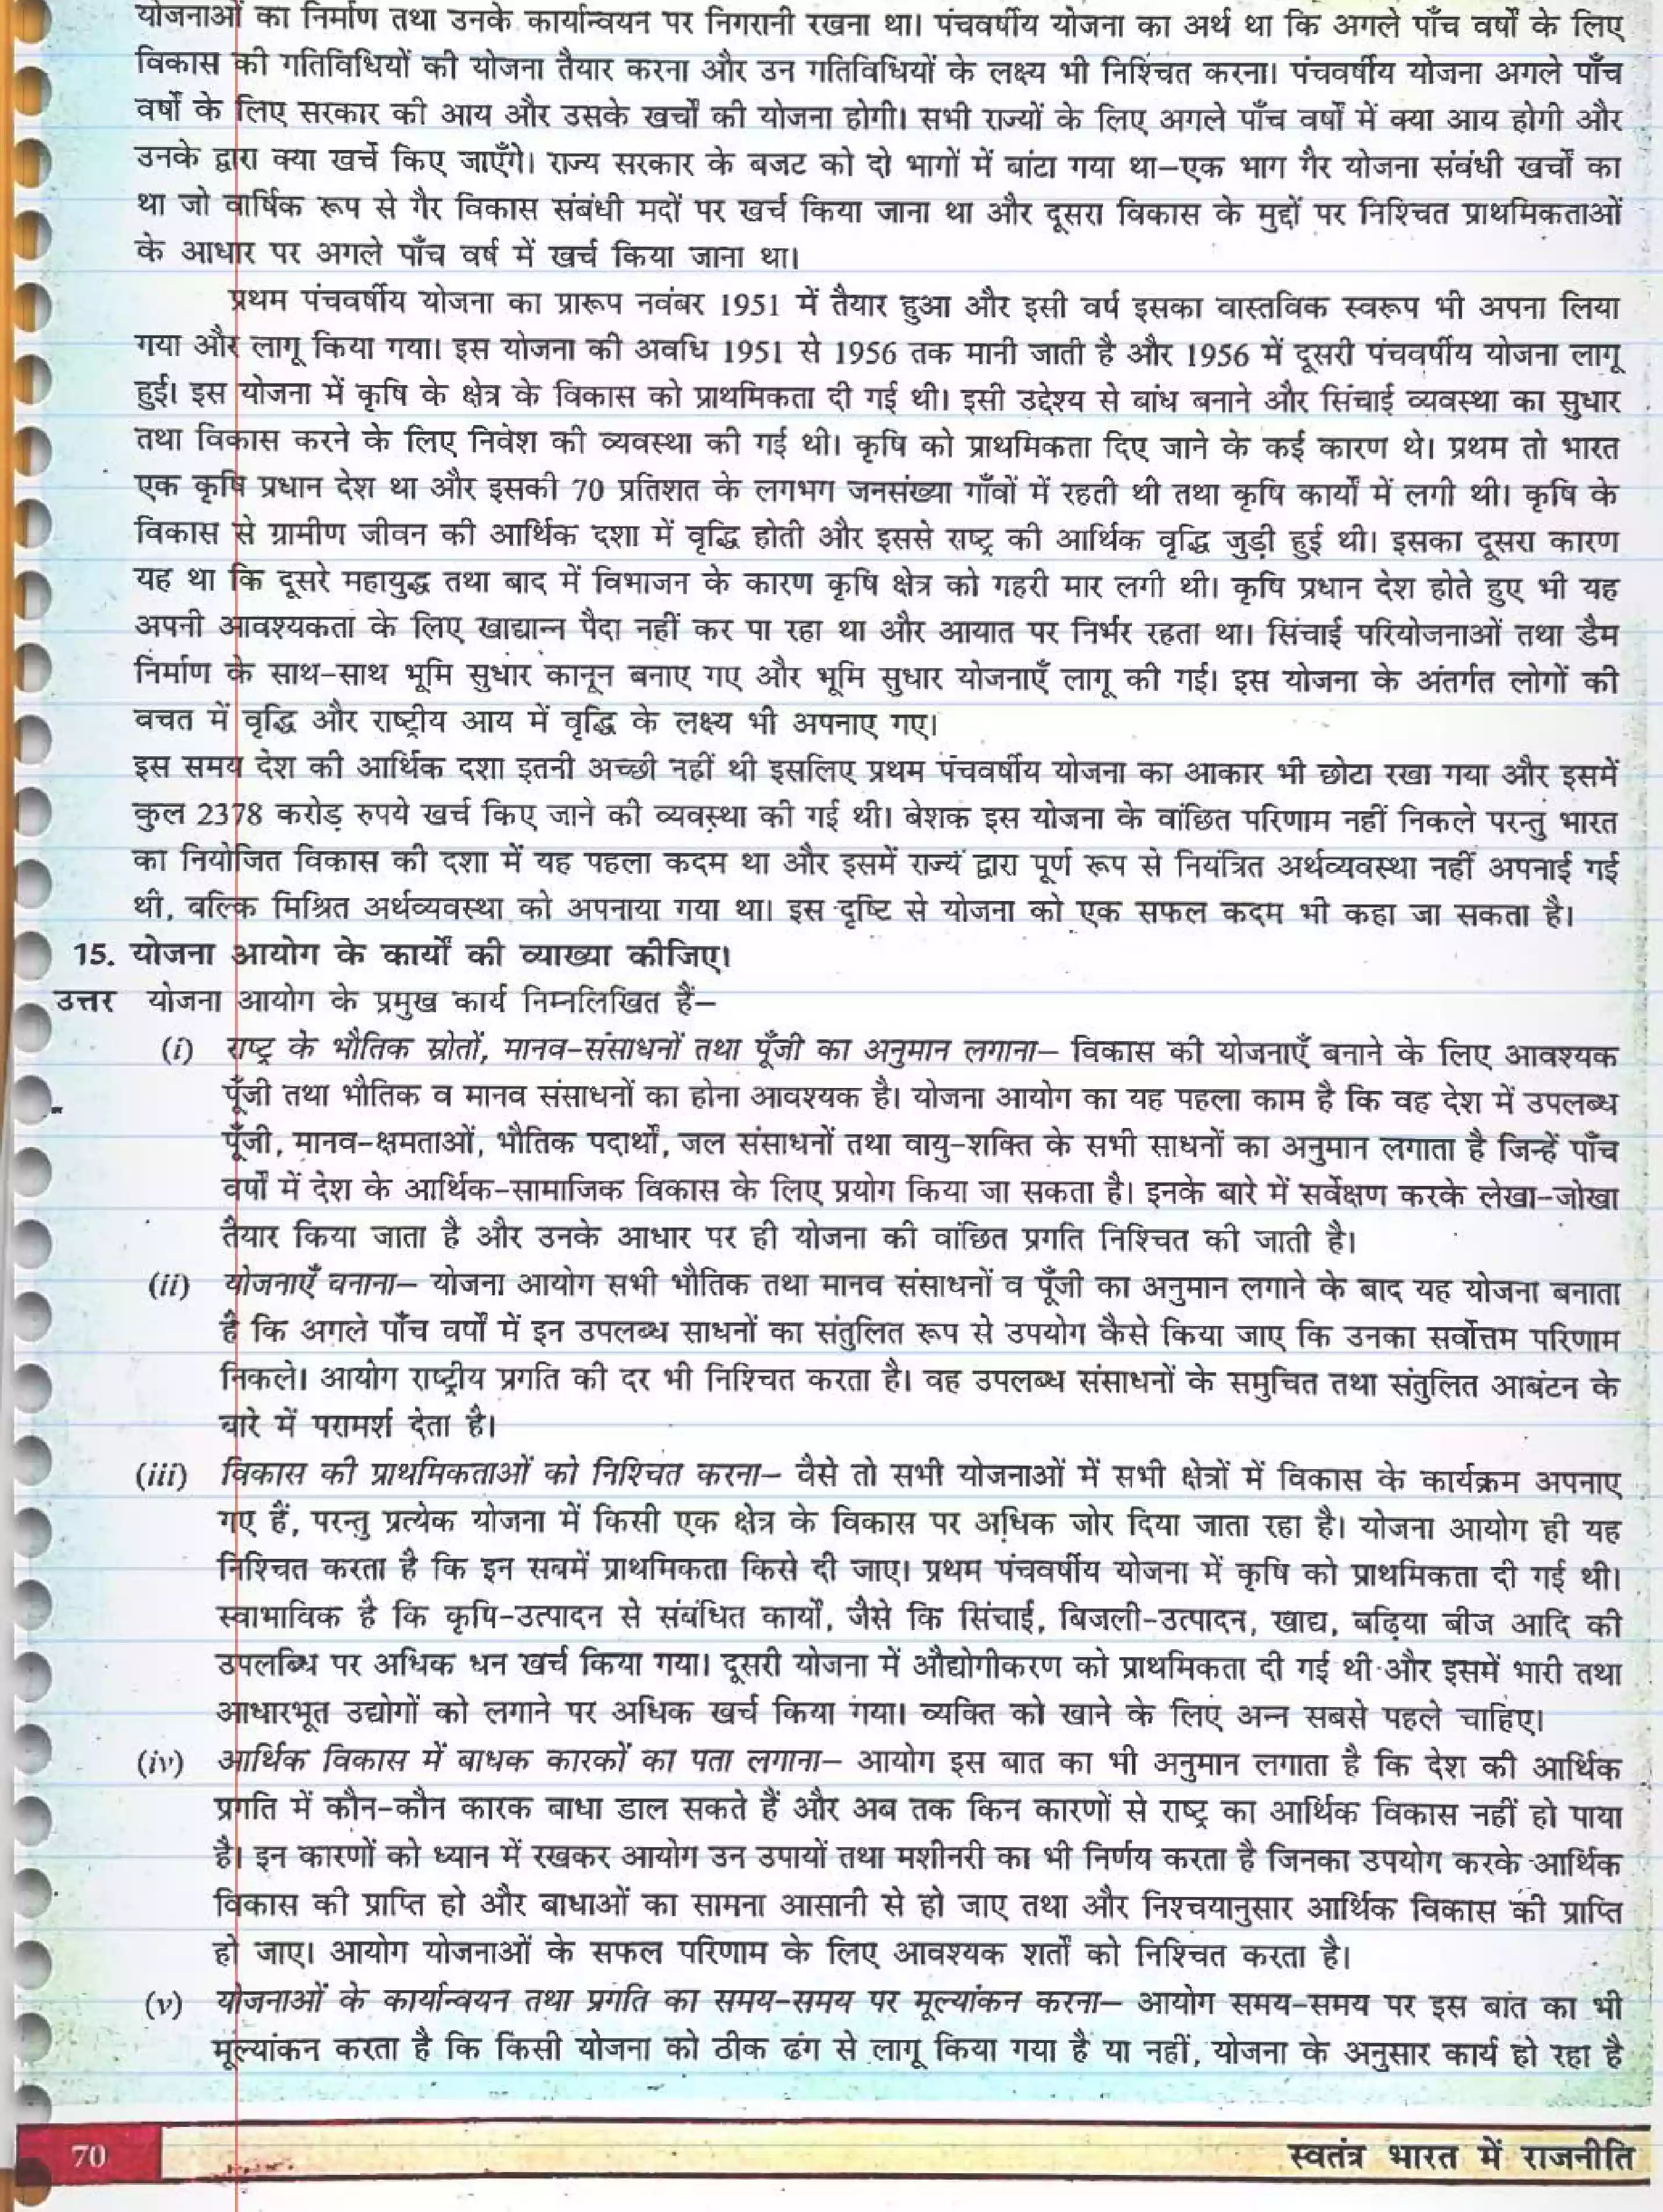 योजनाओं का निर्माण तथा उनके कार्यान्वयन पर निगरानी रखना था। पंचवर्षीय योजना का अर्थ था कि अगले पाँच वर्षों के लिए
विकास की गतिविधियों की योजना तैयार करना और उन गतिविधियों के लक्ष्य भी निश्चित करना। पंचवर्षीय योजना अगले पाँच
वर्षों के लिए सरकार की आय और उसके खर्चों की योजना होगी। सभी राज्यों के लिए अगले पाँच वर्षों में क्या आय होगी और
उनके द्वारा क्या खर्चे किए जाएँगे। राज्य सरकार के बजट को दो भागों में बांटा गया था–एक भाग गैर योजना संबंधी खर्चों का
था जो वार्षिक रूप से गैर विकास संबंधी मदों पर खर्च किया जाना था और दूसरा विकास के मुद्दों पर निश्चित प्राथमिकताओं
के आधार पर अगले पाँच वर्ष में खर्च किया जाना था।
प्रथम पंचवर्षीय योजना का प्रारूप नवंबर 1951 में तैयार हुआ और इसी वर्ष इसका वास्तविक स्वरूप भी अपना लिया
गया और लागू किया गया। इस योजना की अवधि 1951 से 1956 तक मानी जाती है और 1956 में दूसरी पंचवर्षीय योजना लागू
हुई। इस योजना में कृषि के क्षेत्र के विकास को प्राथमिकता दी गई थी। इसी उद्देश्य से बांध बनाने और सिंचाई व्यवस्था का सुधार
तथा विकास करने के लिए निवेश की व्यवस्था की गई थी। कृषि को प्राथमिकता दिए जाने के कई कारण थे। प्रथम तो भारत
एक कृषि प्रधान देश था और इसकी 70 प्रतिशत के लगभग जनसंख्या गाँवों में रहती थी तथा कृषि कार्यों में लगी थी। कृषि के
विकास से ग्रामीण जीवन की आर्थिक दशा में वृद्धि होती और इससे राष्ट्र की आर्थिक वृद्धि जुड़ी हुई थी। इसका दूसरा कारण
यह था कि दूसरे महायुद्ध तथा बाद में विभाजन के कारण कृषि क्षेत्र को गहरी मार लगी थी। कृषि प्रधान देश होते हुए भी यह
अपनी आवश्यकता के लिए खाद्यान्न पैदा नहीं कर पा रहा था और आयात पर निर्भर रहता था। सिंचाई परियोजनाओं तथा डैम
निर्माण के साथ-साथ भूमि सुधार कानून बनाए गए और भूमि सुधार योजनाएँ लागू की गई। इस योजना के अंतर्गत लोगों की
बचत में वृद्धि और राष्ट्रीय आय में वृद्धि के लक्ष्य भी अपनाए गए।
इस समय देश की आर्थिक दशा इतनी अच्छी नहीं थी इसलिए प्रथम पंचवर्षीय योजना का आकार भी छोटा रखा गया और इसमें
कुल 2378 करोड़ रुपये खर्च किए जाने की व्यवस्था की गई थी। बेशक इस योजना के वांछित परिणाम नहीं निकले परन्तु भारत
का नियोजित विकास की दशा में यह पहला कदम था और इसमें राज्य द्वारा पूर्ण रूप से नियंत्रित अर्थव्यवस्था नहीं अपनाई गई
थी, बल्कि मिश्रित अर्थव्यवस्था को अपनाया गया था। इस दृष्टि से योजना को एक सफल कदम भी कहा जा सकता है।
15. योजना आयोग के कार्यों की व्याख्या कीजिए।
उत्तर योजना आयोग के प्रमुख कार्य निम्नलिखित हैं–
(i) राष्ट्र के भौतिक स्रोतों, मानव-संसाधनों तथा पूँजी का अनुमान लगाना– विकास की योजनाएँ बनाने के लिए आवश्यक
पूँजी तथा भौतिक व मानव संसाधनों का होना आवश्यक है। योजना आयोग का यह पहला काम है कि वह देश में उपलब्ध
पूँजी, मानव-क्षमताओं, भौतिक पदार्थों, जल संसाधनों तथा वायु-शक्ति के सभी साधनों का अनुमान लगाता है जिन्हें पाँच
वर्षों में देश के आर्थिक-सामाजिक विकास के लिए प्रयोग किया जा सकता है। इनके बारे में सर्वेक्षण करके लेखा-जोखा
तैयार किया जाता है और उनके आधार पर ही योजना की वांछित प्रगति निश्चित की जाती है।
(ii) योजनाएँ बनाना– योजना आयोग सभी भौतिक तथा मानव संसाधनों व पूँजी का अनुमान लगाने के बाद यह योजना बनाता
है कि अगले पाँच वर्षों में इन उपलब्ध साधनों का संतुलित रूप से उपयोग कैसे किया जाए कि उनका सर्वोत्तम परिणाम
निकले। आयोग राष्ट्रीय प्रगति की दर भी निश्चित करता है। वह उपलब्ध संसाधनों के समुचित तथा संतुलित आबंटन के
बारे में परामर्श देता है।
(iii) विकास की प्राथमिकताओं को निश्चित करना– वैसे तो सभी योजनाओं में सभी क्षेत्रों में विकास के कार्यक्रम अपनाए
गए हैं, परन्तु प्रत्येक योजना में किसी एक क्षेत्र के विकास पर अधिक जोर दिया जाता रहा है। योजना आयोग ही यह
निश्चित करता है कि इन सबमें प्राथमिकता किसे दी जाए। प्रथम पंचवर्षीय योजना में कृषि को प्राथमिकता दी गई थी।
स्वाभाविक है कि कृषि-उत्पादन से संबंधित कार्यों, जैसे कि सिंचाई, बिजली-उत्पादन, खाद्य, बढ़िया बीज आदि की
उपलब्धि पर अधिक धन खर्च किया गया। दूसरी योजना में औद्योगीकरण को प्राथमिकता दी गई थी और इसमें भारी तथा
आधारभूत उद्योगों को लगाने पर अधिक खर्च किया गया। व्यक्ति को खाने के लिए अन्न सबसे पहले चाहिए।
(iv) आर्थिक विकास में बाधक कारकों का पता लगाना– आयोग इस बात का भी अनुमान लगाता है कि देश की आर्थिक
प्रगति में कौन-कौन कारक बाधा डाल सकते हैं और अब तक किन कारणों से राष्ट्र का आर्थिक विकास नहीं हो पाया
है। इन कारणों को ध्यान में रखकर आयोग उन उपायों तथा मशीनरी का भी निर्णय करता है जिनका उपयोग करके आर्थिक
विकास की प्राप्ति हो और बाधाओं का सामना आसानी से हो जाए तथा और निश्चयानुसार आर्थिक विकास की प्राप्ति
हो जाए। आयोग योजनाओं के सफल परिणाम के लिए आवश्यक शर्तों को निश्चित करता है।
(v) योजनाओं के कार्यान्वयन तथा प्रगति का समय-समय पर मूल्यांकन करना– आयोग समय-समय पर इस बात का भी
मूल्यांकन करता है कि किसी योजना को ठीक ढंग से लागू किया गया है या नहीं, योजना के अनुसार कार्य हो रहा है
70
स्वतंत्र भारत में राजनीति